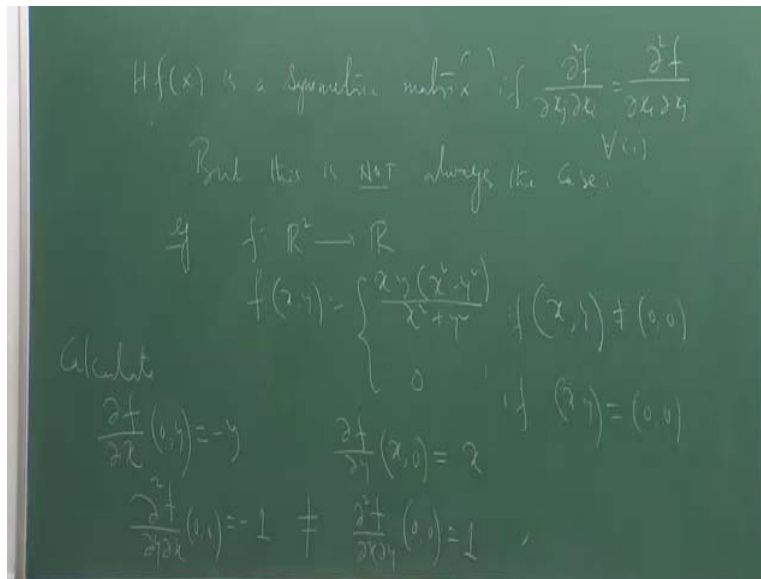 Hf(x) is a symmetric matrix if ∂²f/∂xj∂xi = ∂²f/∂xi∂xj
∀ i, j
But this is NOT always the case.
eg f: ℝ² → ℝ
f(x,y) = { xy(x²-y²)/(x²+y²) if (x,y) ≠ (0,0)
0 if (x,y) = (0,0)
Calculate
∂f/∂x (0,y) = -y ∂f/∂y (x,0) = x
∂²f/∂y∂x (0,0) = -1 ≠ ∂²f/∂x∂y (0,0) = 1